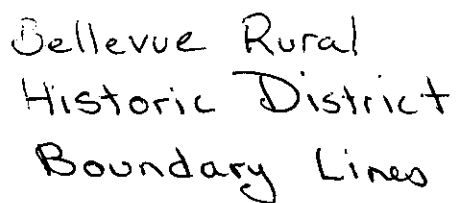 Bellevue Rural
Historic District
Boundary Lines